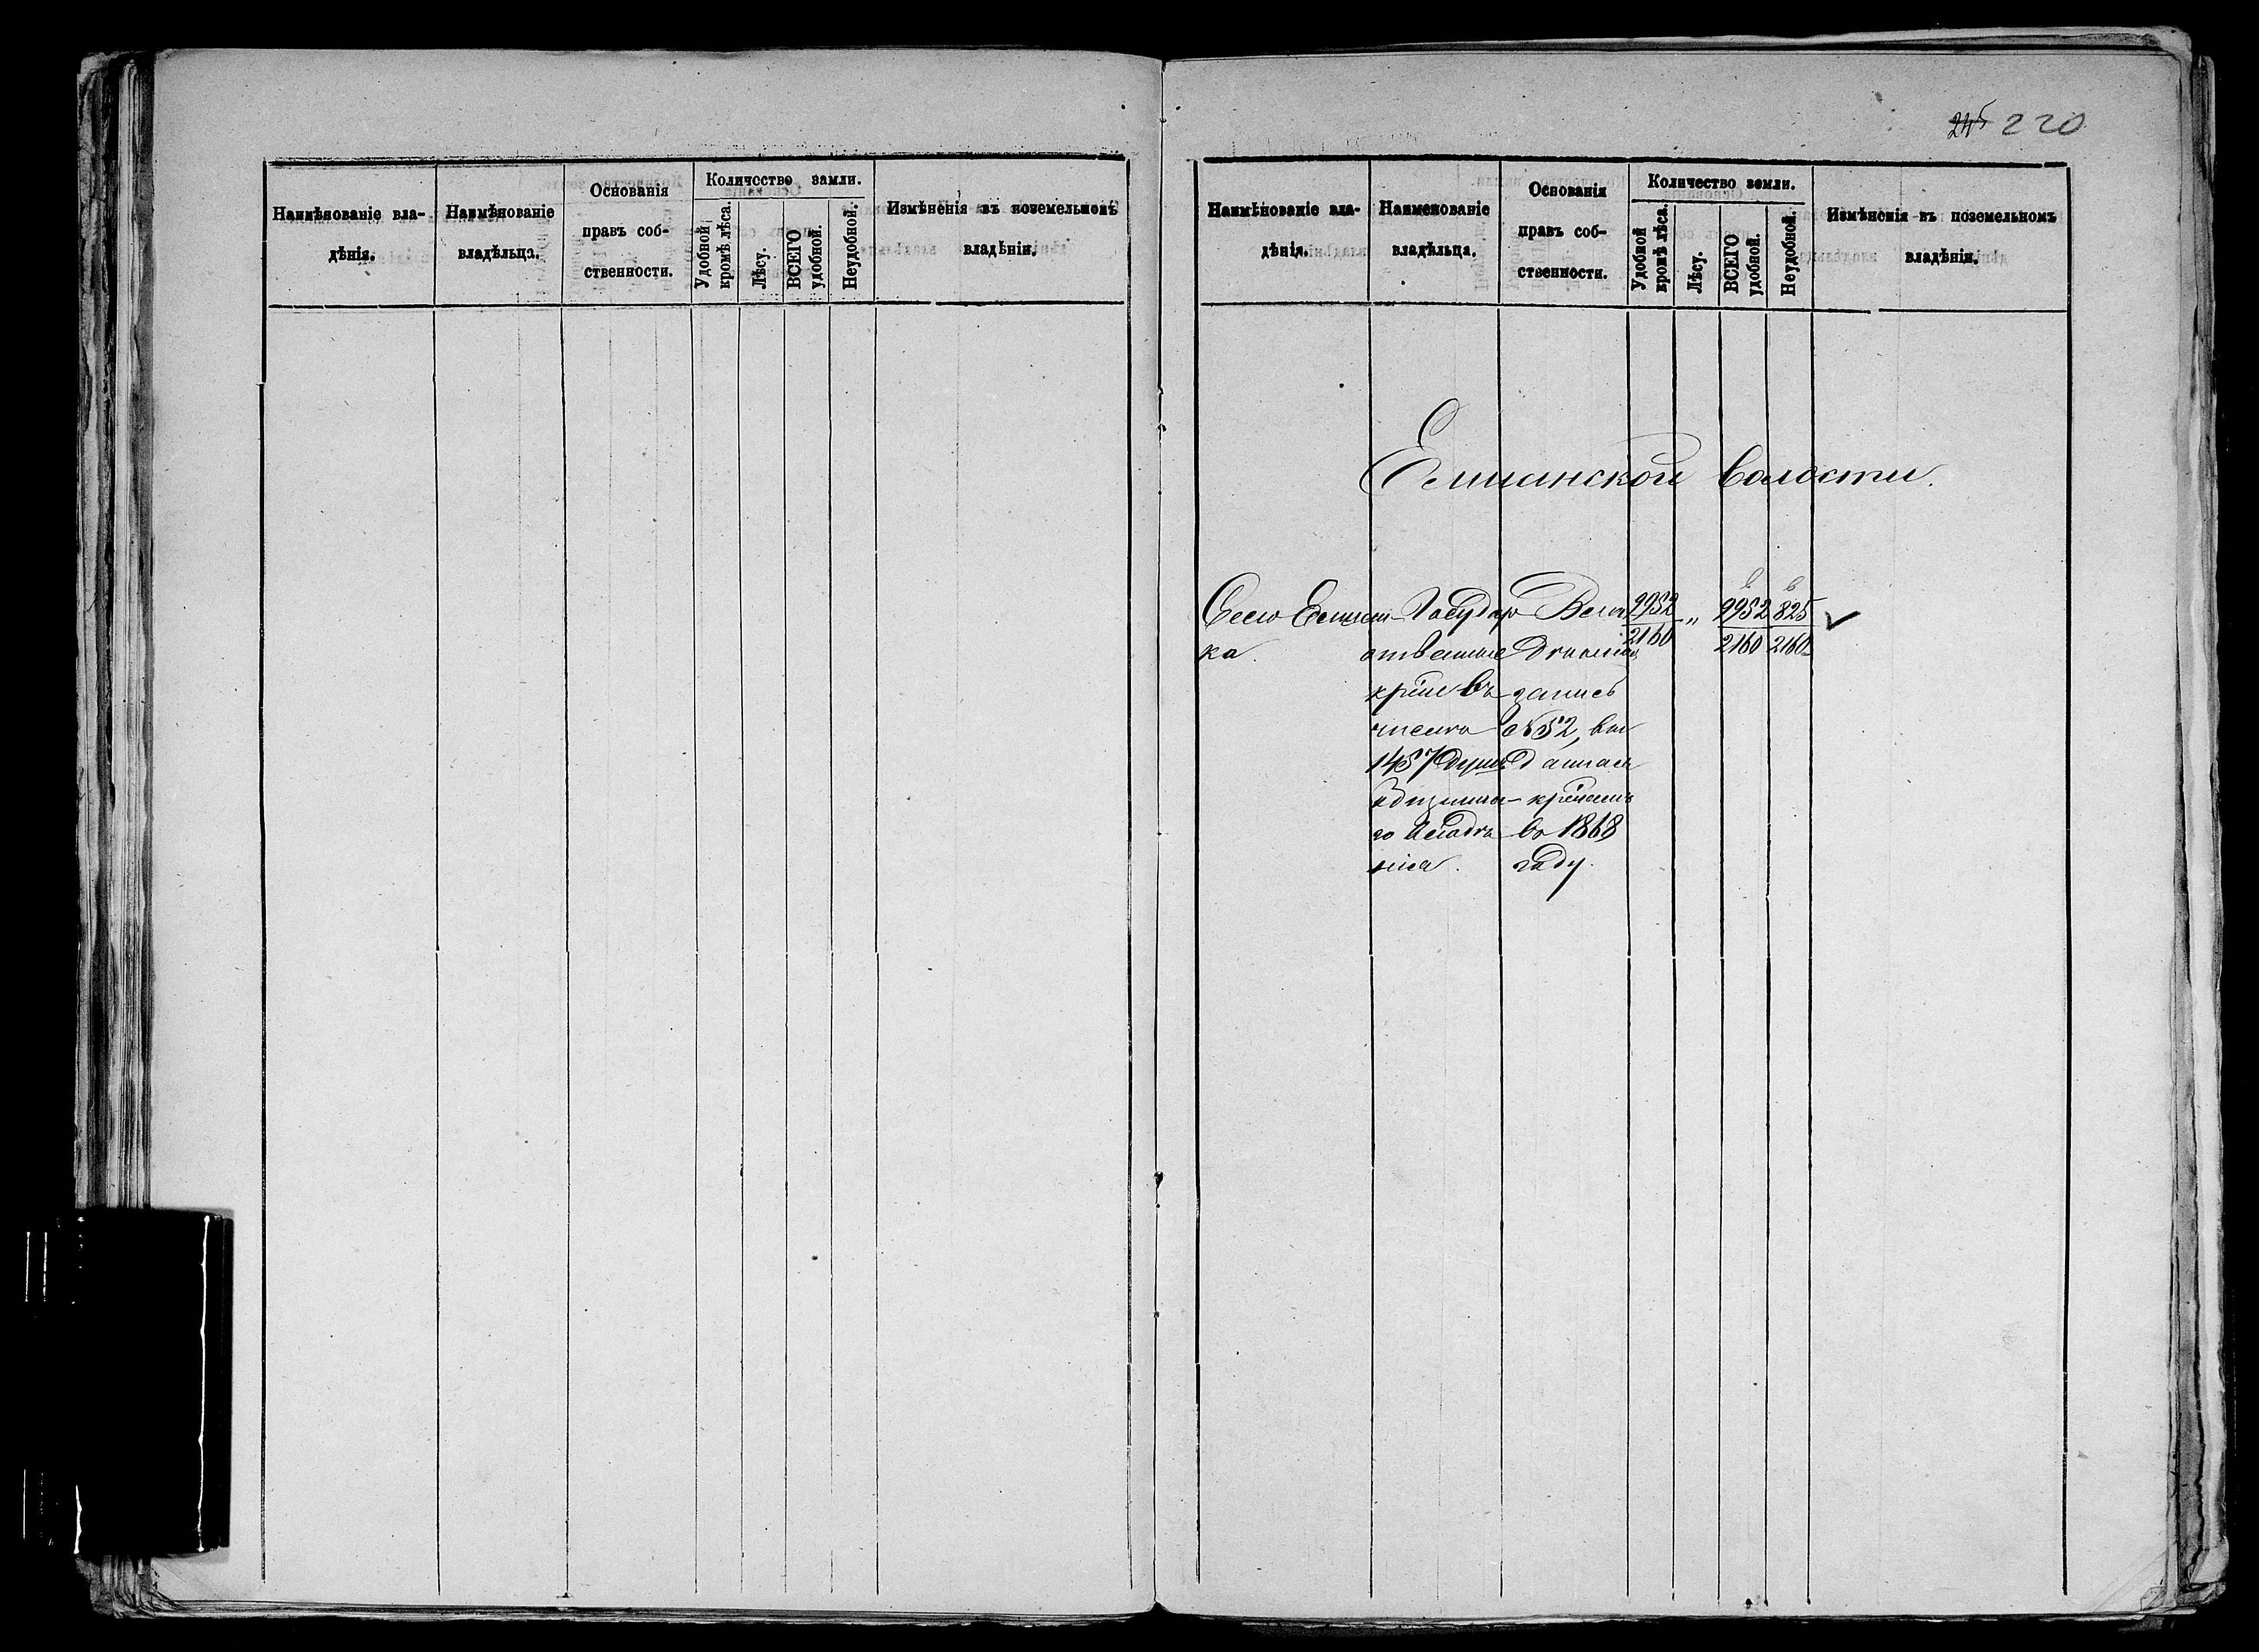 24⁵ 220
Наимѣнованіе вла-
дѣнія.
Наимѣнованіе
владѣльца.
Основанія
правъ соб-
ственности.
Количество земли.
Удобной
кромѣ лѣса.
Лѣсу.
ВСЕГО
удобной.
Неудобной.
Измѣненія въ поземельномъ
владѣніи.
Наимѣнованіе вла-
дѣнія.
Наименованіе
владѣльца.
Основанія
правъ соб-
ственности.
Количество земли.
Удобной
кромѣ лѣса.
Лѣсу.
ВСЕГО
удобной.
Неудобной.
Измѣненія въ поземельномъ
владѣніи.
Елшанской волости.
Село Елшан-
ка.
Государ
ственные
крѣпе въ
числѣ
1457 душъ
го
нія.
Влад
запись
№ 52, вы
данная
крѣпемъ
въ 1868
году.
9952
2160
"
9952
2160
825
2160